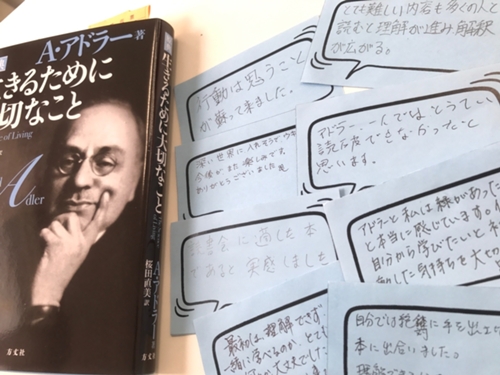 A・アドラー 著
生きるために
大切なこと
e of Living
Adler
方丈社
生きるために大切なこと
A・アドラー 著
桜田直美 訳
方丈社
とても難しい内容も多くの人と
読むと理解が進み解釈
が広がる。
行動は思うこと
が蘇って来ました。
深い世界に入れそうで、
今後が、また楽しみです。
ありがとうございました
アドラー・・・一人ではとうてい
読破できなかったと
思います。
読書会に適した本
であると実感しました
アドラーと私は縁があって
と本当に感じています。
自分から学びたいと
した気持ちを大切
最初は理解できず
一緒に学べるのが、とて
大丈夫でした
自分では絶対に手を出
本に出合いました。